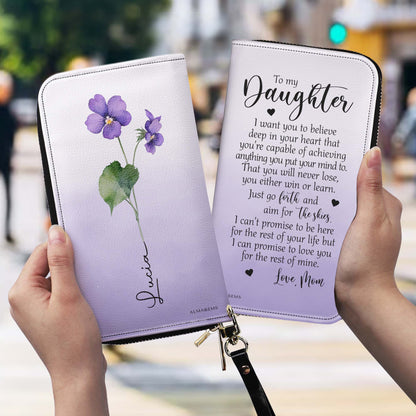 Lucia
ALMAREMS
To my
Daughter
I want you to believe
deep in your heart that
you're capable of achieving
anything you put your mind to.
That you will never lose,
you either win or learn.
Just go forth and
aim for The skies.
I can't promise to be here
for the rest of your life but
I can promise to love you
for the rest of mine.
Love, Mom
ALMAREMS